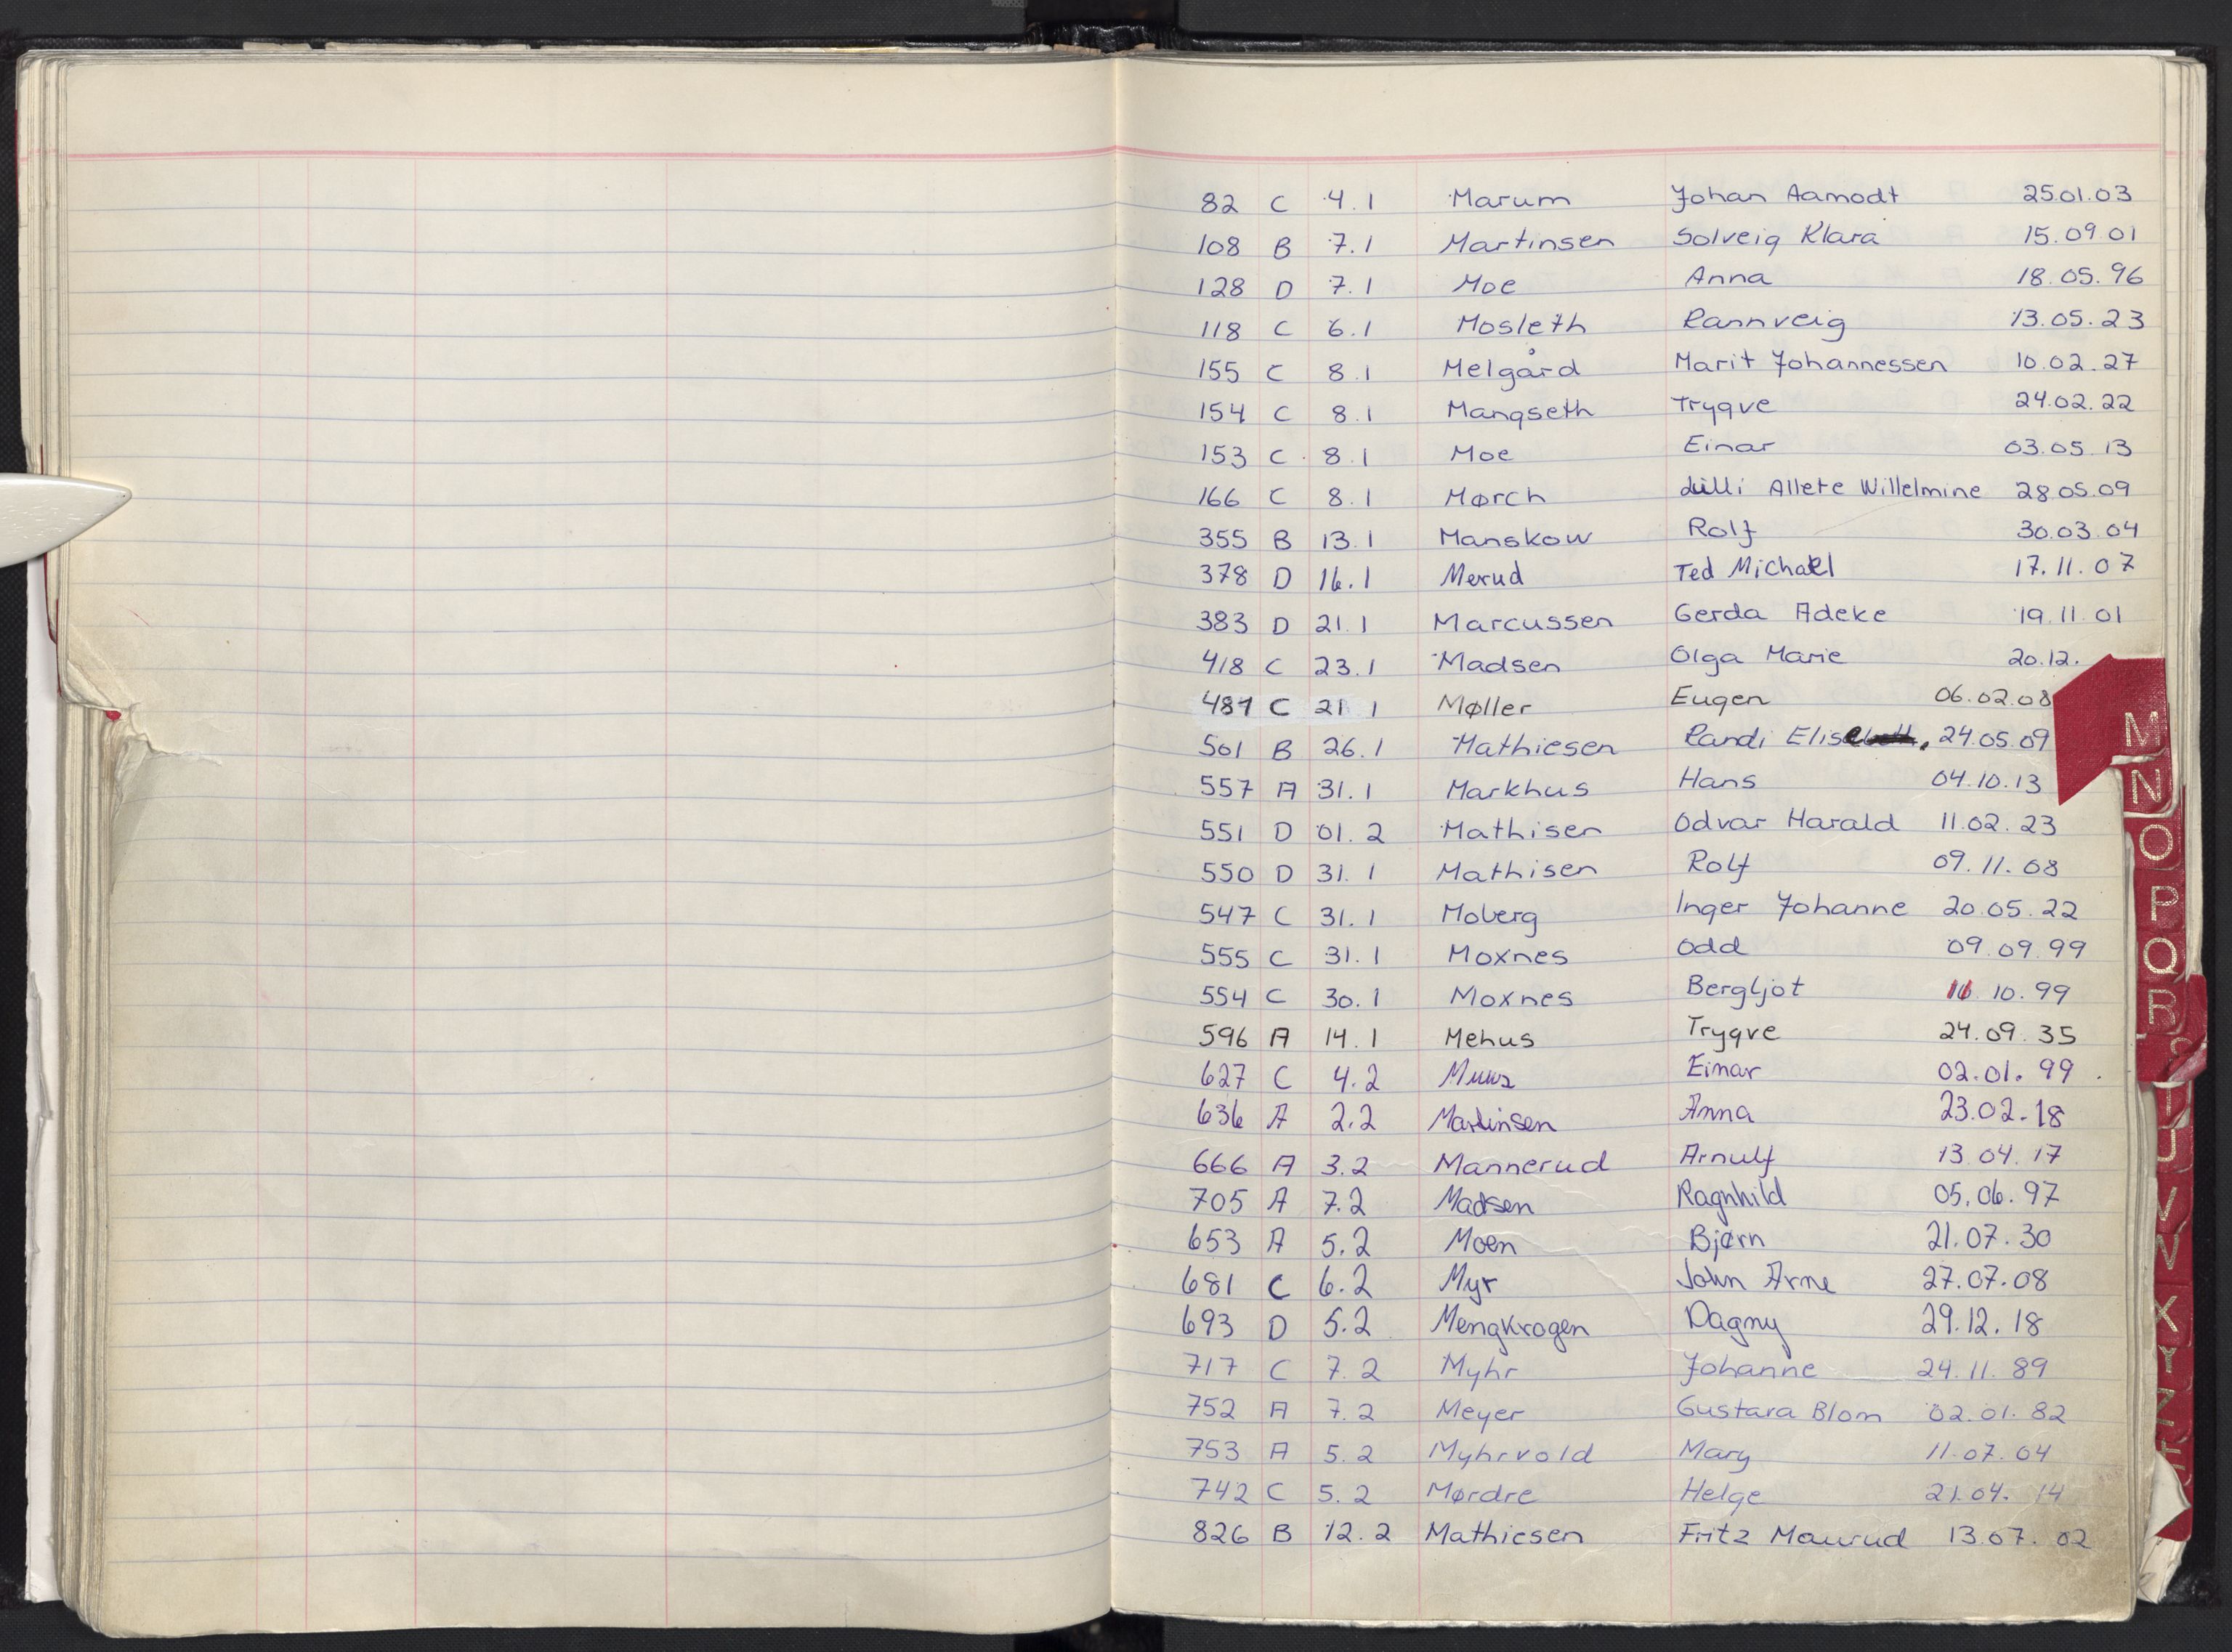 82 C 4.1 Marum Johan Aamodt 25.01.03
108 B 7.1 Martinsen Solveig Klara 15.09.01
128 D 7.1 Moe Anna 18.05.96
118 C 6.1 Mosleth Rannveig 13.05.23
155 C 8.1 Melgård Marit Johannessen 10.02.27
154 C 8.1 Mangseth Trygve 24.02.22
153 C 8.1 Moe Einar 03.05.13
166 C 8.1 Mørch Lilli Allete Willelmine 28.05.09
355 B 13.1 Manskow Rolf 30.03.04
378 D 16.1 Merud Ted Michael 17.11.07
383 D 21.1 Marcussen Gerda Adeke 19.11.01
418 C 23.1 Madsen Olga Marie 20.12.
481 C 21 1 Møller Eugen 06.02.08
501 B 26.1 Mathiesen Randi Elise 24.05.09
557 A 31.1 Markhus Hans 04.10.13
551 D 01.2 Mathisen Odvar Harald 11.02.23
550 D 31.1 Mathisen Rolf 09.11.08
547 C 31.1 Moberg Inger Johanne 20.05.22
555 C 31.1 Moxnes Odd 09.09.99
554 C 30.1 Moxnes Bergljot 10.99
596 A 14.1 Mehus Trygve 24.09.35
627 C 4.2 Einar 02.01.99
636 A 2.2 Martinsen Anna 23.02.18
666 A 3.2 Mannerud Arnulf 13.04.17
705 A 7.2 Madsen Ragnhild 05.06.97
653 A 5.2 Moen Bjørn 21.07.30
681 C 6.2 Myr John Arne 27.07.08
693 D 5.2 Mengkrogen Dagny 29.12.18
717 C 7.2 Myhr Johanne 24.11.89
752 A 7.2 Meyer Gustara Blom 02.01.82
753 A 5.2 Myhrvold Mary 11.07.04
742 C 5.2 Mørdre Helge 21.04.14
826 B 12.2 Mathiesen Fritz Maurud 13.07.02
M
N
O
P
Q
R
T
U
V
W
X
Y
Z